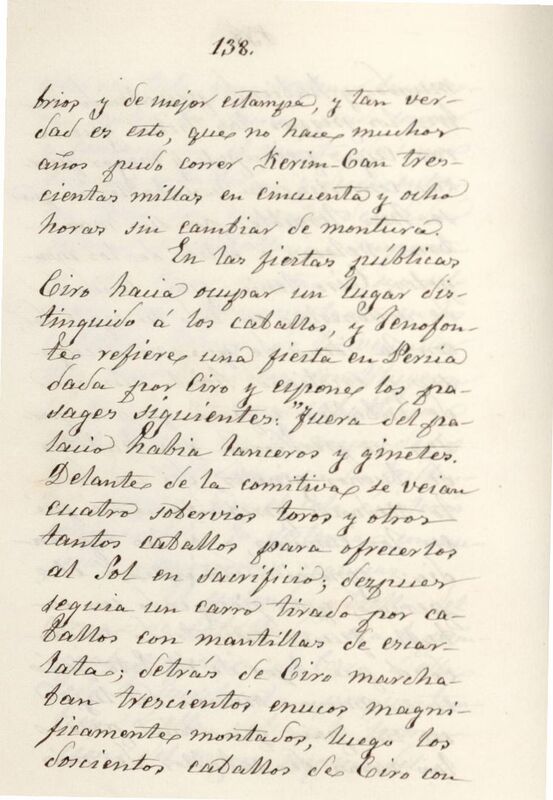 138.
brios y de mejor estampa, y tan ver-
dad es esto, que no hace muchos
años pudo correr Kerim-Can tres-
cientas millas en cincuenta y ocho
horas sin cambiar de montura.
En las fiestas públicas
Ciro hacia ocupar un lugar dis-
tinguido á los caballos, y Jenofon-
te refiere una fiesta en Persia
dada por Ciro y espone los pa-
sages siguientes: "Fuera del pa-
lacio habia lanceros y ginetes.
Delante de la comitiva se veian
cuatro sobervios toros y otros
tantos caballos para ofrecerlos
al Sol en sacrificio; despues
seguia un carro tirado por ca-
ballos con mantillas de escar-
lata; detrás de Ciro marcha-
ban trescientos enucos magni-
ficamente montados, luego los
doscientos caballos de Ciro con